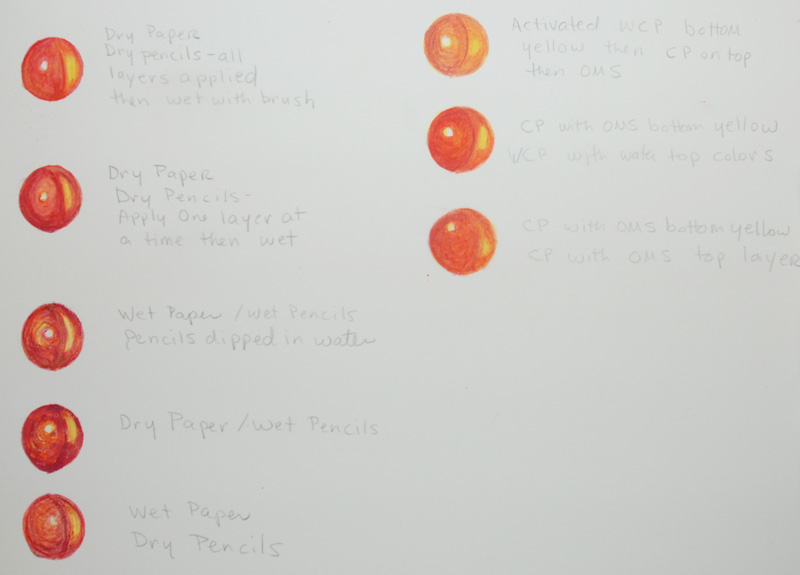 Dry Paper
Dry pencils-all
layers applied
then wet with brush
Dry Paper
Dry Pencils-
Apply One layer at
a time then wet
Wet Paper / Wet Pencils
Pencils dipped in water
Dry Paper / Wet Pencils
Wet Paper
Dry Pencils
Activated WCP bottom
yellow then CP on top
then OMS
CP with OMS bottom yellow
WCP with water top colors
CP with OMS bottom yellow
CP with OMS top layer